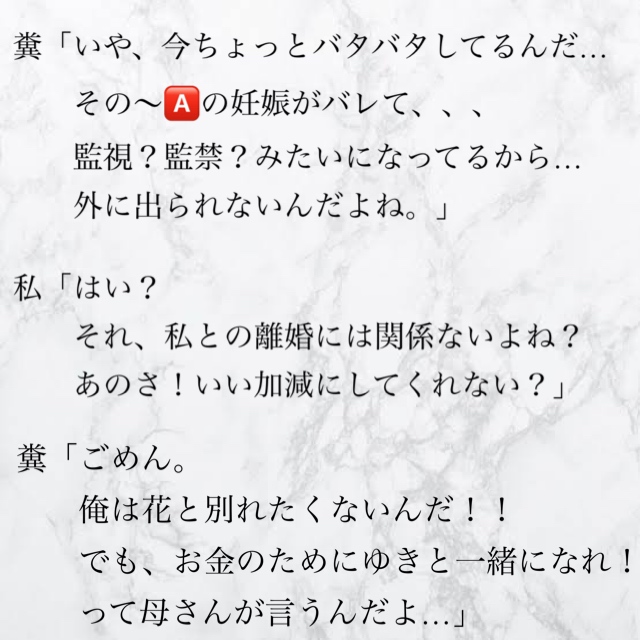 糞「いや、今ちょっとバタバタしてるんだ…
その〜🅰️の妊娠がバレて、、、
監視?監禁?みたいになってるから…
外に出られないんだよね。」
私「はい?
それ、私との離婚には関係ないよね?
あのさ!いい加減にしてくれない?」
糞「ごめん。
俺は花と別れたくないんだ!!
でも、お金のためにゆきと一緒になれ!
って母さんが言うんだよ…」